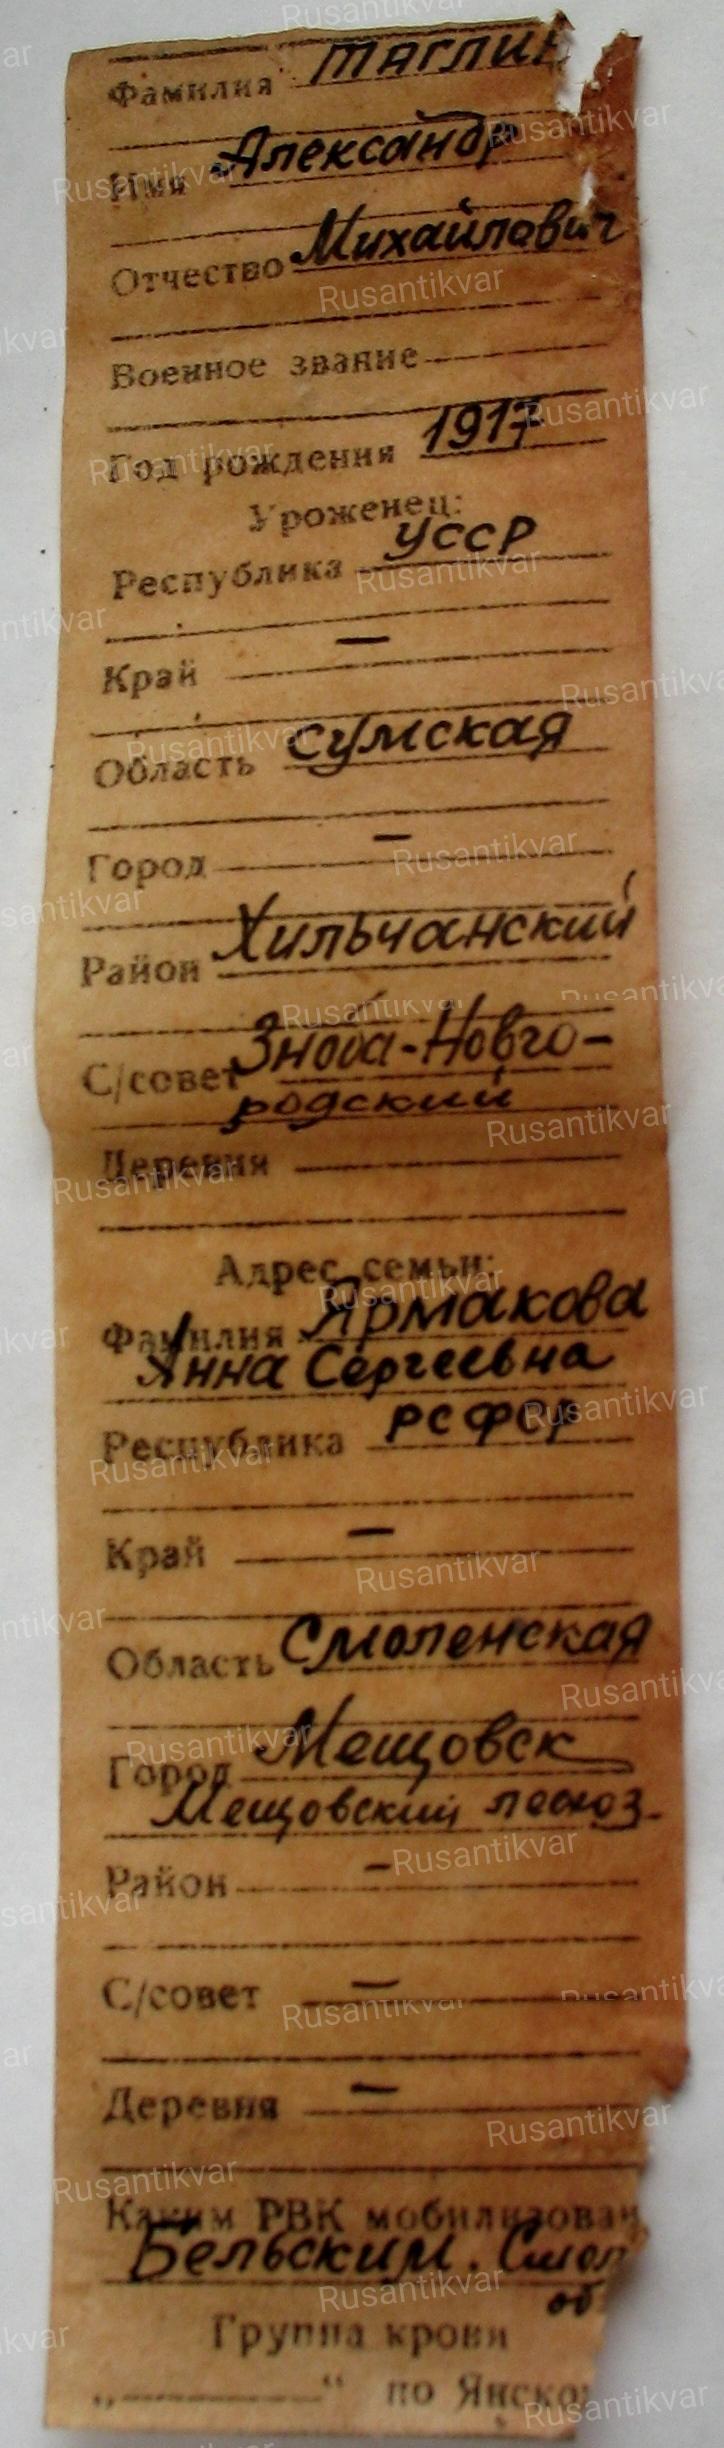 Фамилия Таглин
Имя Александр
Отчество Михайлович
Военное звание
Год рождения 1917
Уроженец:
Республика УССР
Край —
Область Сумская
Город —
Район Хильчанский
С/совет Зноба-Новго-
родский
Деревня
Адрес семьи:
Фамилия Ярмакова
Анна Сергеевна
Республика РСФСР
Край —
Область Смоленская
Город Мещовск
Мещовский лесхоз
Район —
С/совет —
Деревня —
Каким РВК мобилизован
Бельским. Смол
об
Группа крови
„ “ по Янско
Rusantikvar